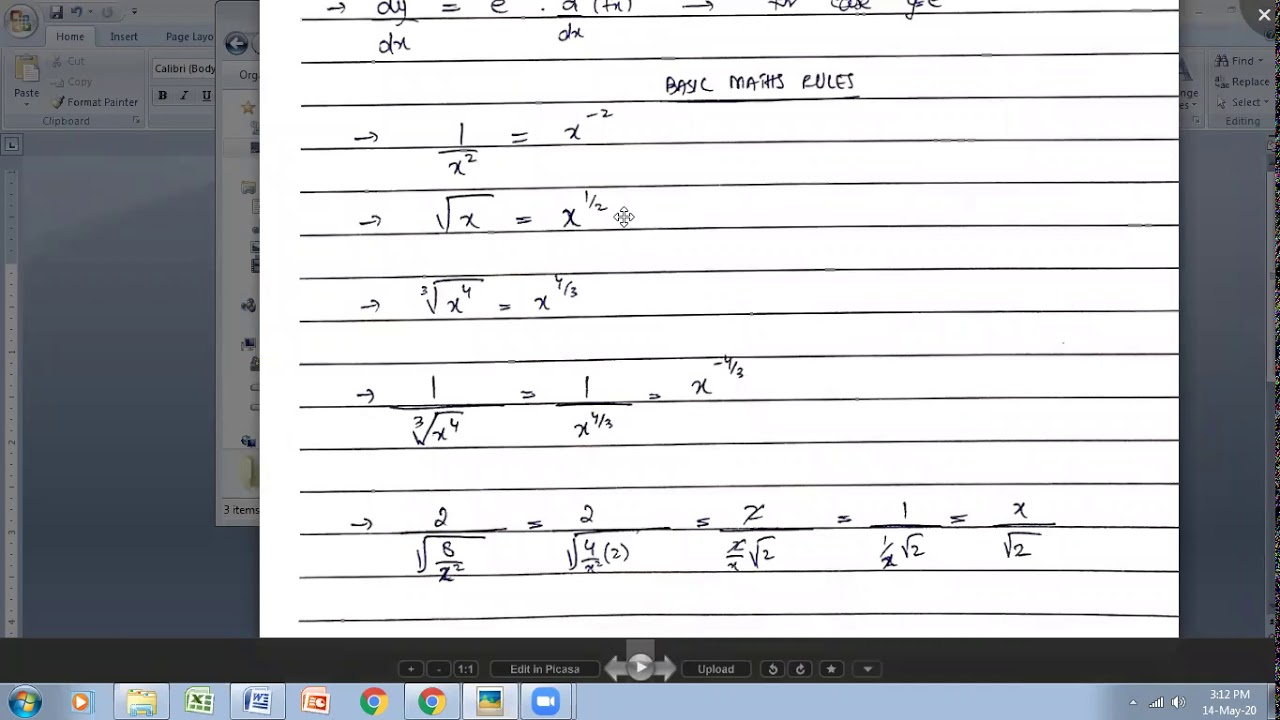 Home Insert Page Layout
Paste Cut Copy Format Painter
Clipboard
Calibri (Body
B I U
Find
Replace
Select
Editing
Orga
3 items
→ dy/dx = e · d/dx → for case y=e
BASIC MATHS RULES
→ 1/x² = x⁻²
→ √x = x^1/2
→ ³√x⁴ = x^4/3
→ 1/³√x⁴ = 1/x^4/3 = x^-4/3
→ 2/√(8/x²) = 2/√(4/x² (2)) = 2/(2/x √2) = 1/(1/x √2) = x/√2
+ - 1:1 Edit in Picasa Upload
3:12 PM
14-May-20